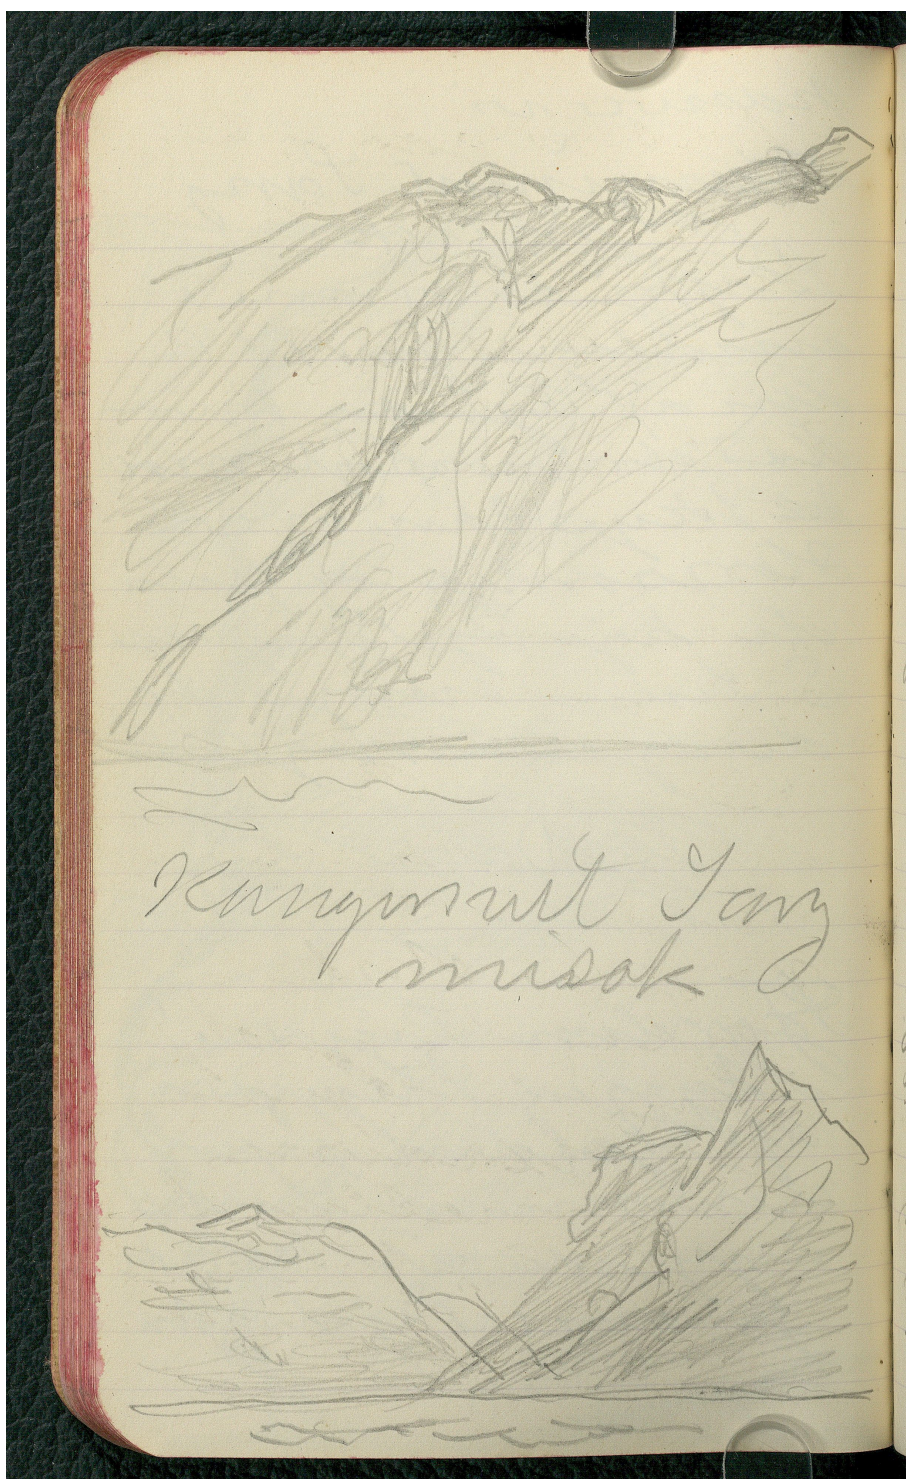 Kanginsuit Tarz
misok